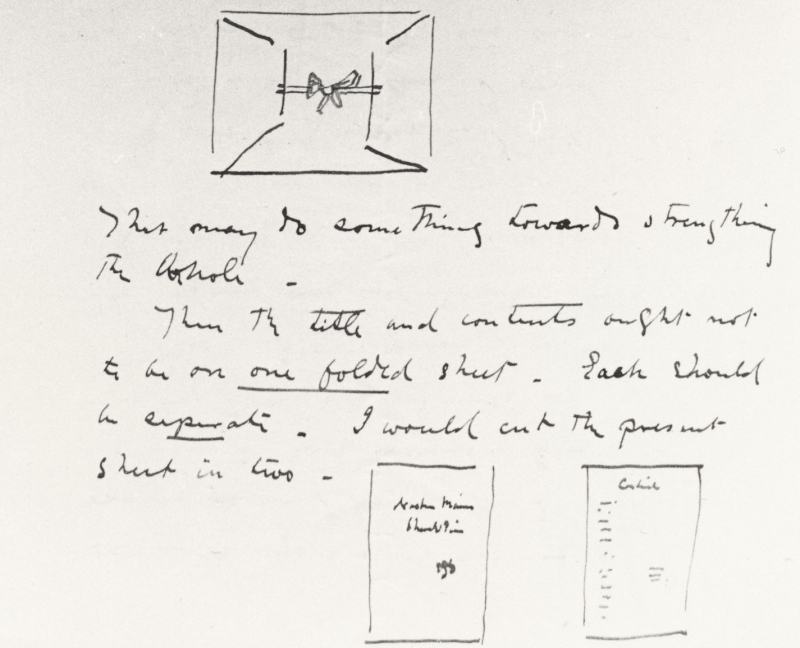 This may do something towards strengthing
the whole -
Then the title and contents ought not
to be on one folded sheet. Each should
be separate. I would cut the present
sheet in two -